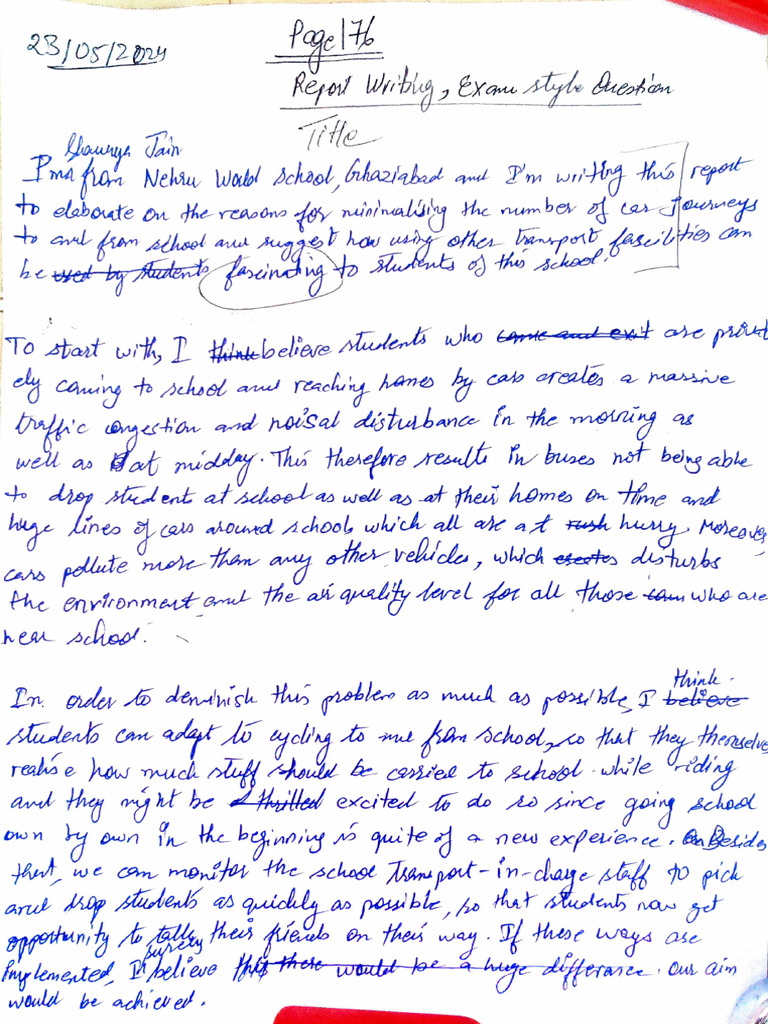 23/05/2024
Page 176
Report Writing, Exam style Question
Title
Shaurya Jain
I'm from Nehru World School, Ghaziabad and I'm writing this report
to elaborate on the reasons for minimalising the number of car journeys
to and from school and suggest how using other transport fascilities can
be used by students fascinating to students of this school.
To start with, I think believe students who come and exit are privat
ely coming to school and reaching homes by cars creates a massive
traffic congestion and noisal disturbance in the morning as
well as at midday. This therefore results in buses not being able
to drop student at school as well as at their homes on time and
huge lines of cars around school, which all are at rush hurry. Moreover,
cars pollute more than any other vehicles, which creates disturbs
the environment and the air quality level for all those who are
near school.
think
In order to deminish this problem as much as possible, I believe
students can adapt to cycling to and from school, so that they themselves
realise how much stuff should be carried to school while riding
and they might be thrilled excited to do so since going school
own by own in the beginning is quite of a new experience. Besides
that, we can monitor the school transport-in-charge staff to pick
and drop students as quickly as possible, so that students now get
opportunity to tally their friends on their way. If these ways are
surely
implemented, I believe this there would be a huge difference. our aim
would be achieved.